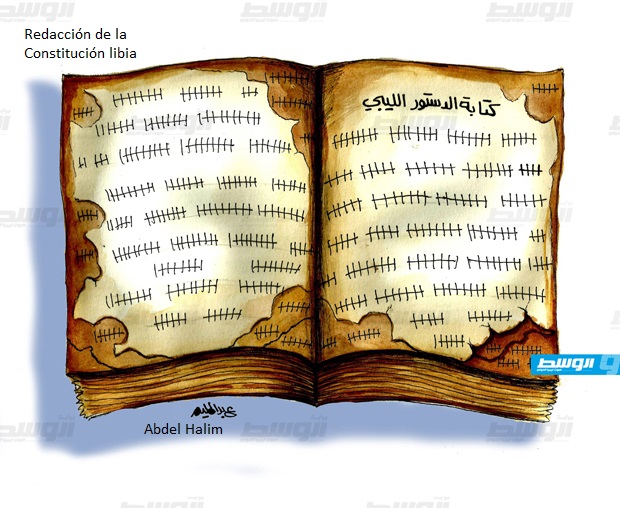 Redacción de la
Constitución libia
كتابة الدستور الليبي
الوسط
عبدالحليم
Abdel Halim